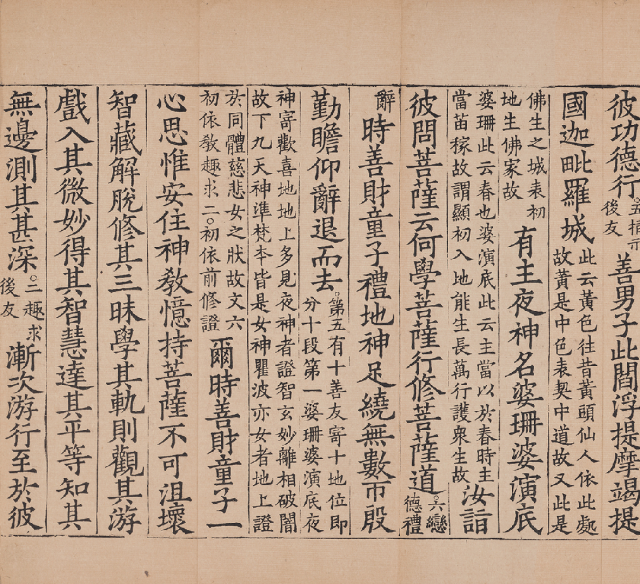 彼功德行○五指示後友善男子此閻浮提摩竭提
國迦毗羅城此云黃色往昔黃頭仙人依此處故黃是中色表契中道故又此是
佛生之城表初地生佛家故有主夜神名婆珊婆演底
婆珊此云春也婆演底此云主當以於春時主當苗稼故謂顯初入地能生長萬行護衆生故汝詣
彼問菩薩云何學菩薩行修菩薩道○六戀德禮
辭時善財童子禮地神足繞無數帀殷
勤瞻仰辭退而去○第五有十善友寄十地位即分十段第一婆珊婆演底夜
神寄歡喜地地上多見夜神者證智玄妙離相破闇故下九天神準梵本皆是女神瞿波亦女者地上證
於同體慈悲女之狀故文六初依教趣求二○初依前修證爾時善財童子一
心思惟安住神教憶持菩薩不可沮壞
智藏解脫修其三昧學其軌則觀其游
戲入其微妙得其智慧達其平等知其
無邊測其甚深○二趣求後友漸次游行至於彼